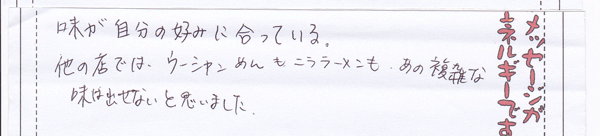 味が自分の好みに合っている。
他の店では、ウーシャンめんもニララーメンも、あの複雑な
味は出せないと思いました。
メッセージが
エネルギーです